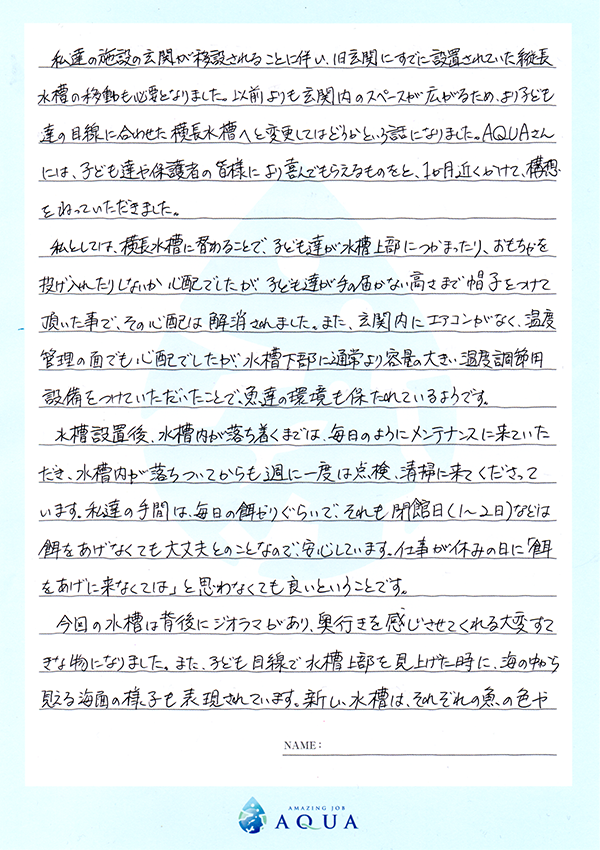 私達の施設の玄関が移設されることに伴い、旧玄関にすでに設置されていた縦長
水槽の移動も必要となりました。以前よりも玄関内のスペースが広がるため、より子ども
達の目線に合わせた横長水槽へと変更してはどうかという話になりました。AQUAさん
には、子ども達や保護者の皆様により喜んでもらえるものをと、1か月近くかけて、構想
をねっていただきました。
私としては、横長水槽に替わることで、子ども達が水槽上部につかまったり、おもちゃを
投げ入れたりしないか心配でしたが、子ども達が手の届かない高さまで帽子をつけて
頂いた事で、その心配は解消されました。また、玄関内にエアコンがなく、温度
管理の面でも心配でしたが、水槽下部に通常より容量の大きい温度調節用
設備をつけていただいたことで、魚達の環境も保たれているようです。
水槽設置後、水槽内が落ち着くまでは、毎日のようにメンテナンスに来ていた
だき、水槽内が落ちついてからも週に一度は点検、清掃に来てくださって
います。私達の手間は、毎日の餌やりぐらいで、それも閉館日(1〜2日)などは
餌をあげなくても大丈夫とのことなので、安心しています。仕事が休みの日に「餌
をあげに来なくては」と思わなくても良いということです。
今回の水槽は背後にジオラマがあり、奥行きを感じさせてくれる大変すて
きな物になりました。また、子ども目線で水槽上部を見上げた時に、海の中から
見える海面の様子も表現されています。新しい水槽は、それぞれの魚の色や
NAME:
AMAZING JOB
AQUA